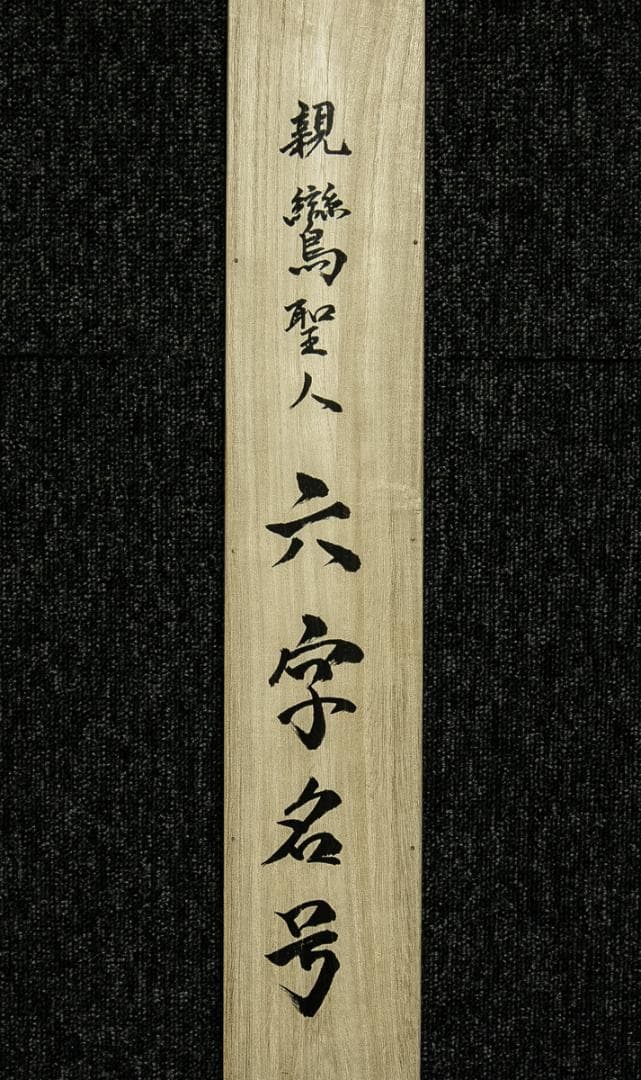 親鸞聖人六字名号